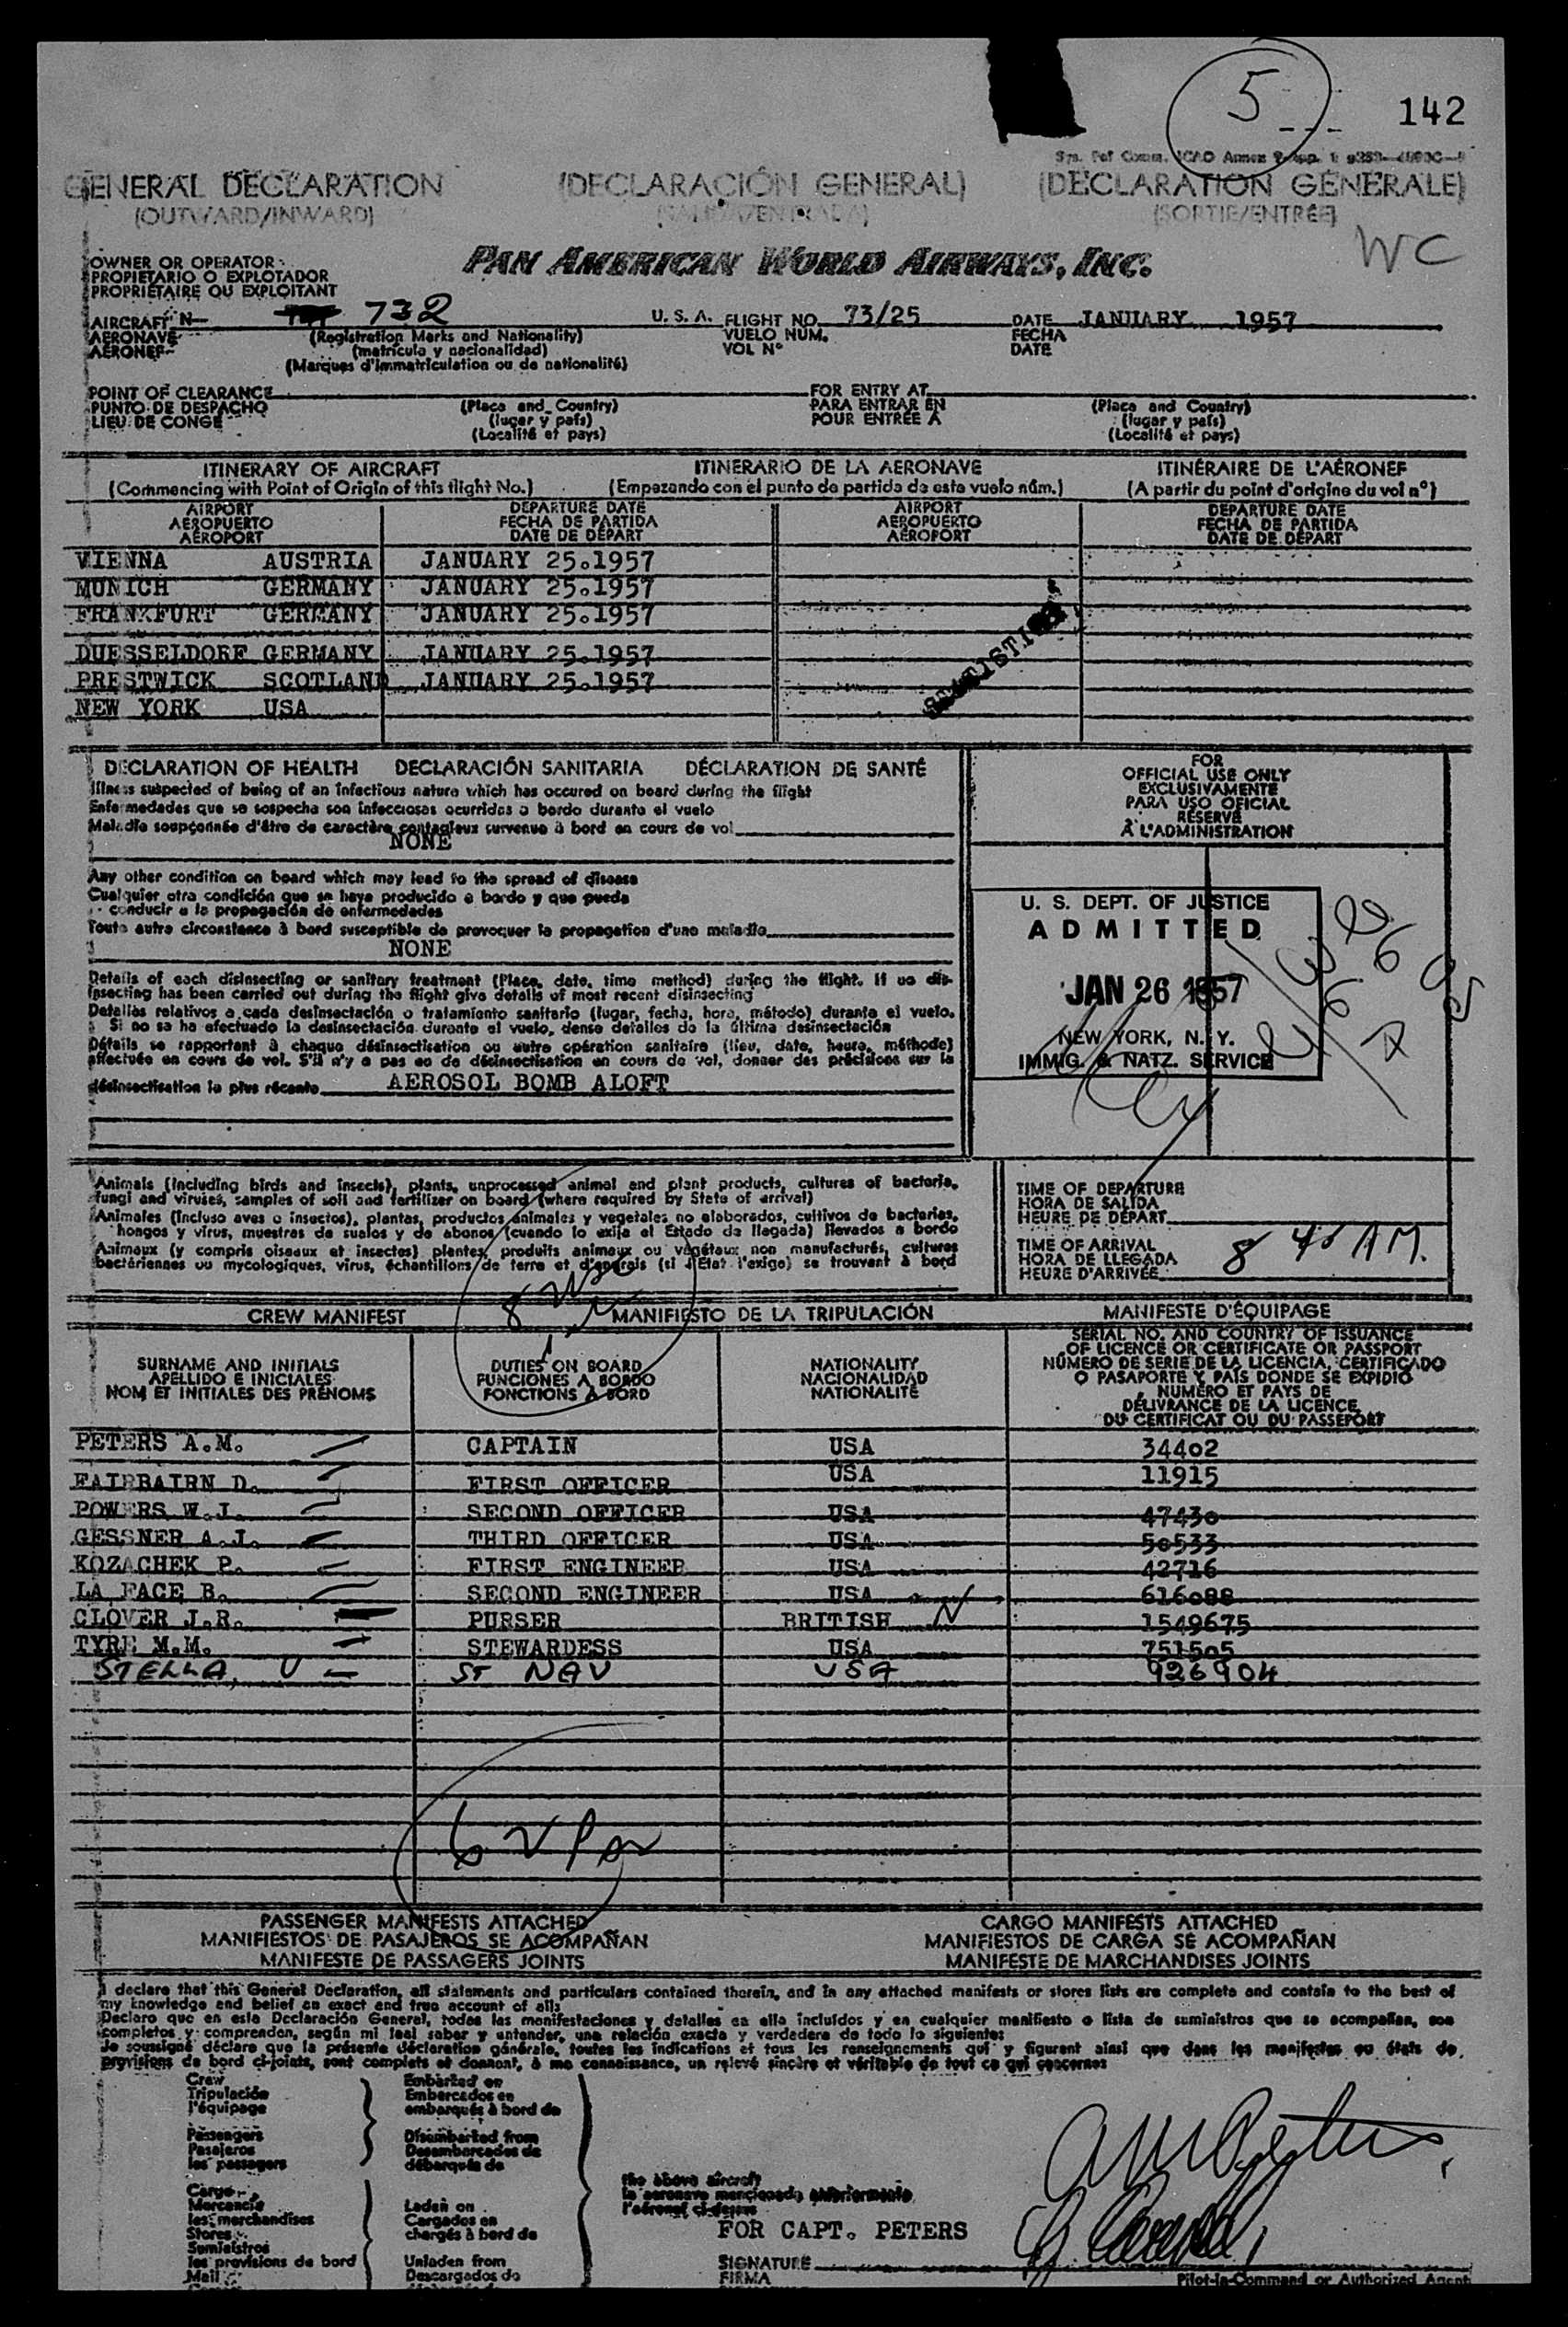 5
142
GENERAL DECLARATION (DECLARACIÓN GENERAL) (DÉCLARATION GÉNÉRALE)
(OUTWARD/INWARD) (SALIDA/ENTRADA) (SORTIE/ENTRÉE)
WC
OWNER OR OPERATOR
PROPIETARIO O EXPLOTADOR
PROPRIÉTAIRE OU EXPLOITANT
PAN AMERICAN WORLD AIRWAYS, INC.
AIRCRAFT N 732 U. S. A. FLIGHT NO. 73/25 DATE JANUARY 1957
AERONAVE (Registration Marks and Nationality) VUELO NUM. FECHA
AÉRONEF (matrícula y nacionalidad) VOL N° DATE
(Marques d'immatriculation ou de nationalité)
POINT OF CLEARANCE FOR ENTRY AT
PUNTO DE DESPACHO (Place and Country) PARA ENTRAR EN (Place and Country)
LIEU DE CONGÉ (lugar y país) POUR ENTRÉE A (lugar y país)
(Localité et pays) (Localité et pays)
ITINERARY OF AIRCRAFT ITINERARIO DE LA AERONAVE ITINÉRAIRE DE L'AÉRONEF
(Commencing with Point of Origin of this flight No.) (Empezando con el punto de partida de este vuelo núm.) (A partir du point d'origine du vol n°)
AIRPORT DEPARTURE DATE AIRPORT DEPARTURE DATE
AEROPUERTO FECHA DE PARTIDA AEROPUERTO FECHA DE PARTIDA
AÉROPORT DATE DE DÉPART AÉROPORT DATE DE DÉPART
VIENNA AUSTRIA JANUARY 25.1957
MUNICH GERMANY JANUARY 25.1957
FRANKFURT GERMANY JANUARY 25.1957
DUESSELDORF GERMANY JANUARY 25.1957
PRESTWICK SCOTLAND JANUARY 25.1957
NEW YORK USA
DECLARATION OF HEALTH DECLARACIÓN SANITARIA DÉCLARATION DE SANTÉ
Illness suspected of being of an infectious nature which has occured on board during the flight
Enfermedades que se sospecha son infecciosas ocurridas a bordo durante el vuelo
Maladie soupçonnée d'être de caractère contagieux survenue à bord en cours de vol
NONE
Any other condition on board which may lead to the spread of disease
Cualquier otra condición que se haya producido a bordo y que pueda
conducir a la propagación de enfermedades
Toute autre circonstance à bord susceptible de provoquer la propagation d'une maladie
NONE
Details of each disinsecting or sanitary treatment (Place, date, time method) during the flight. If no dis-
insecting has been carried out during the flight give details of most recent disinsecting
Detalles relativos a cada desinsectación o tratamiento sanitario (lugar, fecha, hora, método) durante el vuelo.
Si no se ha efectuado la desinsectación durante el vuelo, dense detalles de la última desinsectación
Détails se rapportant à chaque désinsectisation ou autre opération sanitaire (lieu, date, heure, méthode)
effectuée en cours de vol. S'il n'y a pas eo de désinsectisation en cours de vol, donner des précisions sur la
désinsectisation la plus récente AEROSOL BOMB ALOFT
FOR
OFFICIAL USE ONLY
EXCLUSIVAMENTE
PARA USO OFICIAL
RÉSERVÉ
À L'ADMINISTRATION
U. S. DEPT. OF JUSTICE
ADMITTED
JAN 26 1957
NEW YORK, N. Y.
IMMIG. & NATZ. SERVICE
Animals (including birds and insects), plants, unprocessed animal and plant products, cultures of bacteria,
fungi and viruses, samples of soil and fertilizer on board (where required by State of arrival)
Animales (incluso aves o insectos), plantas, productos animales y vegetales no elaborados, cultivos de bacterias,
hongos y virus, muestras de suelos y de abonos (cuando lo exija el Estado de llegada) llevados a bordo
Animaux (y compris oiseaux et insectes) plantes, produits animaux ou végétaux non manufacturés, cultures
bactériennes ou mycologiques, virus, échantillons de terre et d'engrais (si l'État l'exige) se trouvant à bord
TIME OF DEPARTURE
HORA DE SALIDA
HEURE DE DÉPART
TIME OF ARRIVAL
HORA DE LLEGADA
HEURE D'ARRIVÉE
CREW MANIFEST MANIFIESTO DE LA TRIPULACIÓN MANIFESTE D'ÉQUIPAGE
SURNAME AND INITIALS
APELLIDO E INICIALES
NOM ET INITIALES DES PRÉNOMS
DUTIES ON BOARD
FUNCIONES A BORDO
FONCTIONS À BORD
NATIONALITY
NACIONALIDAD
NATIONALITÉ
SERIAL NO. AND COUNTRY OF ISSUANCE
OF LICENCE OR CERTIFICATE OR PASSPORT
NÚMERO DE SERIE DE LA LICENCIA, CERTIFICADO
O PASAPORTE Y PAÍS DONDE SE EXPIDIÓ
NUMÉRO ET PAYS DE
DÉLIVRANCE DE LA LICENCE,
DU CERTIFICAT OU DU PASSEPORT
PETERS A.M. CAPTAIN USA 34402
FAIRBAIRN D. FIRST OFFICER USA 11915
POWERS W.J. SECOND OFFICER USA 47430
GESSNER A.J. THIRD OFFICER USA 50533
KOZACHEK P. FIRST ENGINEER USA 42716
LA FACE B. SECOND ENGINEER USA 616088
CLOVER J.R. PURSER BRITISH 1549675
TYRE M.M. STEWARDESS USA 751505
STELLA, V ST NAV USA 926904
PASSENGER MANIFESTS ATTACHED CARGO MANIFESTS ATTACHED
MANIFIESTOS DE PASAJEROS SE ACOMPAÑAN MANIFIESTOS DE CARGA SE ACOMPAÑAN
MANIFESTE DE PASSAGERS JOINTS MANIFESTE DE MARCHANDISES JOINTS
I declare that this General Declaration, all statements and particulars contained therein, and in any attached manifests or stores lists are complete and contain to the best of
my knowledge and belief an exact and true account of all:
Declaro que en esta Declaración General, todas las manifestaciones y detalles en ella incluídos y en cualquier manifiesto o lista de suministros que se acompañan, son
completos y comprenden, según mi leal saber y entender, una relación exacta y verdadera de todo lo siguiente:
Je soussigné déclare que la présente déclaration générale, toutes les indications et tous les renseignements qui y figurent ainsi que dans les manifestes ou états de
provisions de bord ci-joints, sont complets et donnent, à ma connaissance, un relevé sincère et véritable de tout ce qui concerne:
Crew Embarked on
Tripulación Embarcados en
l'équipage embarqués à bord de
Passengers Disembarked from
Pasajeros Desembarcados de
les passagers débarqués de
the above aircraft
la aeronave mencionada anteriormente
l'aéronef ci-dessus
Cargo
Mercancía Laden on
les merchandises Cargados en
Stores chargés à bord de
Suministros
les provisions de bord Unladen from
Mail Descargados de
FOR CAPT. PETERS
SIGNATURE
FIRMA
Pilot-in-Command or Authorized Agent